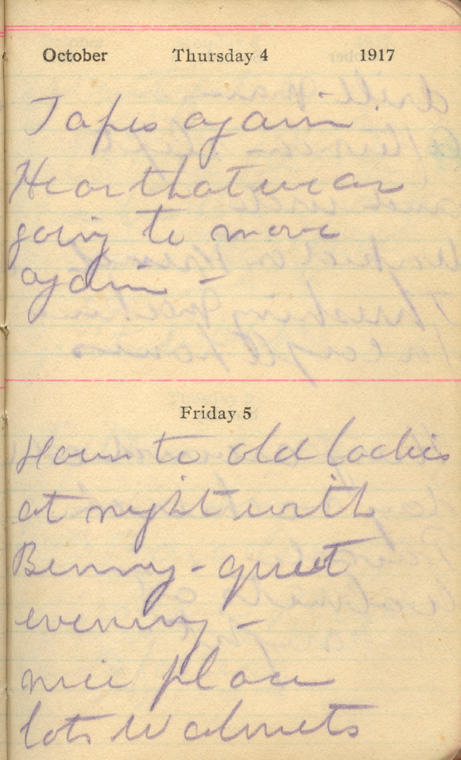 October Thursday 4 1917
Tapes again
Hear that we are
going to move
again -
Friday 5
Down to old ladies
at night with
Benny - quiet
evening -
nice place
lots walnuts